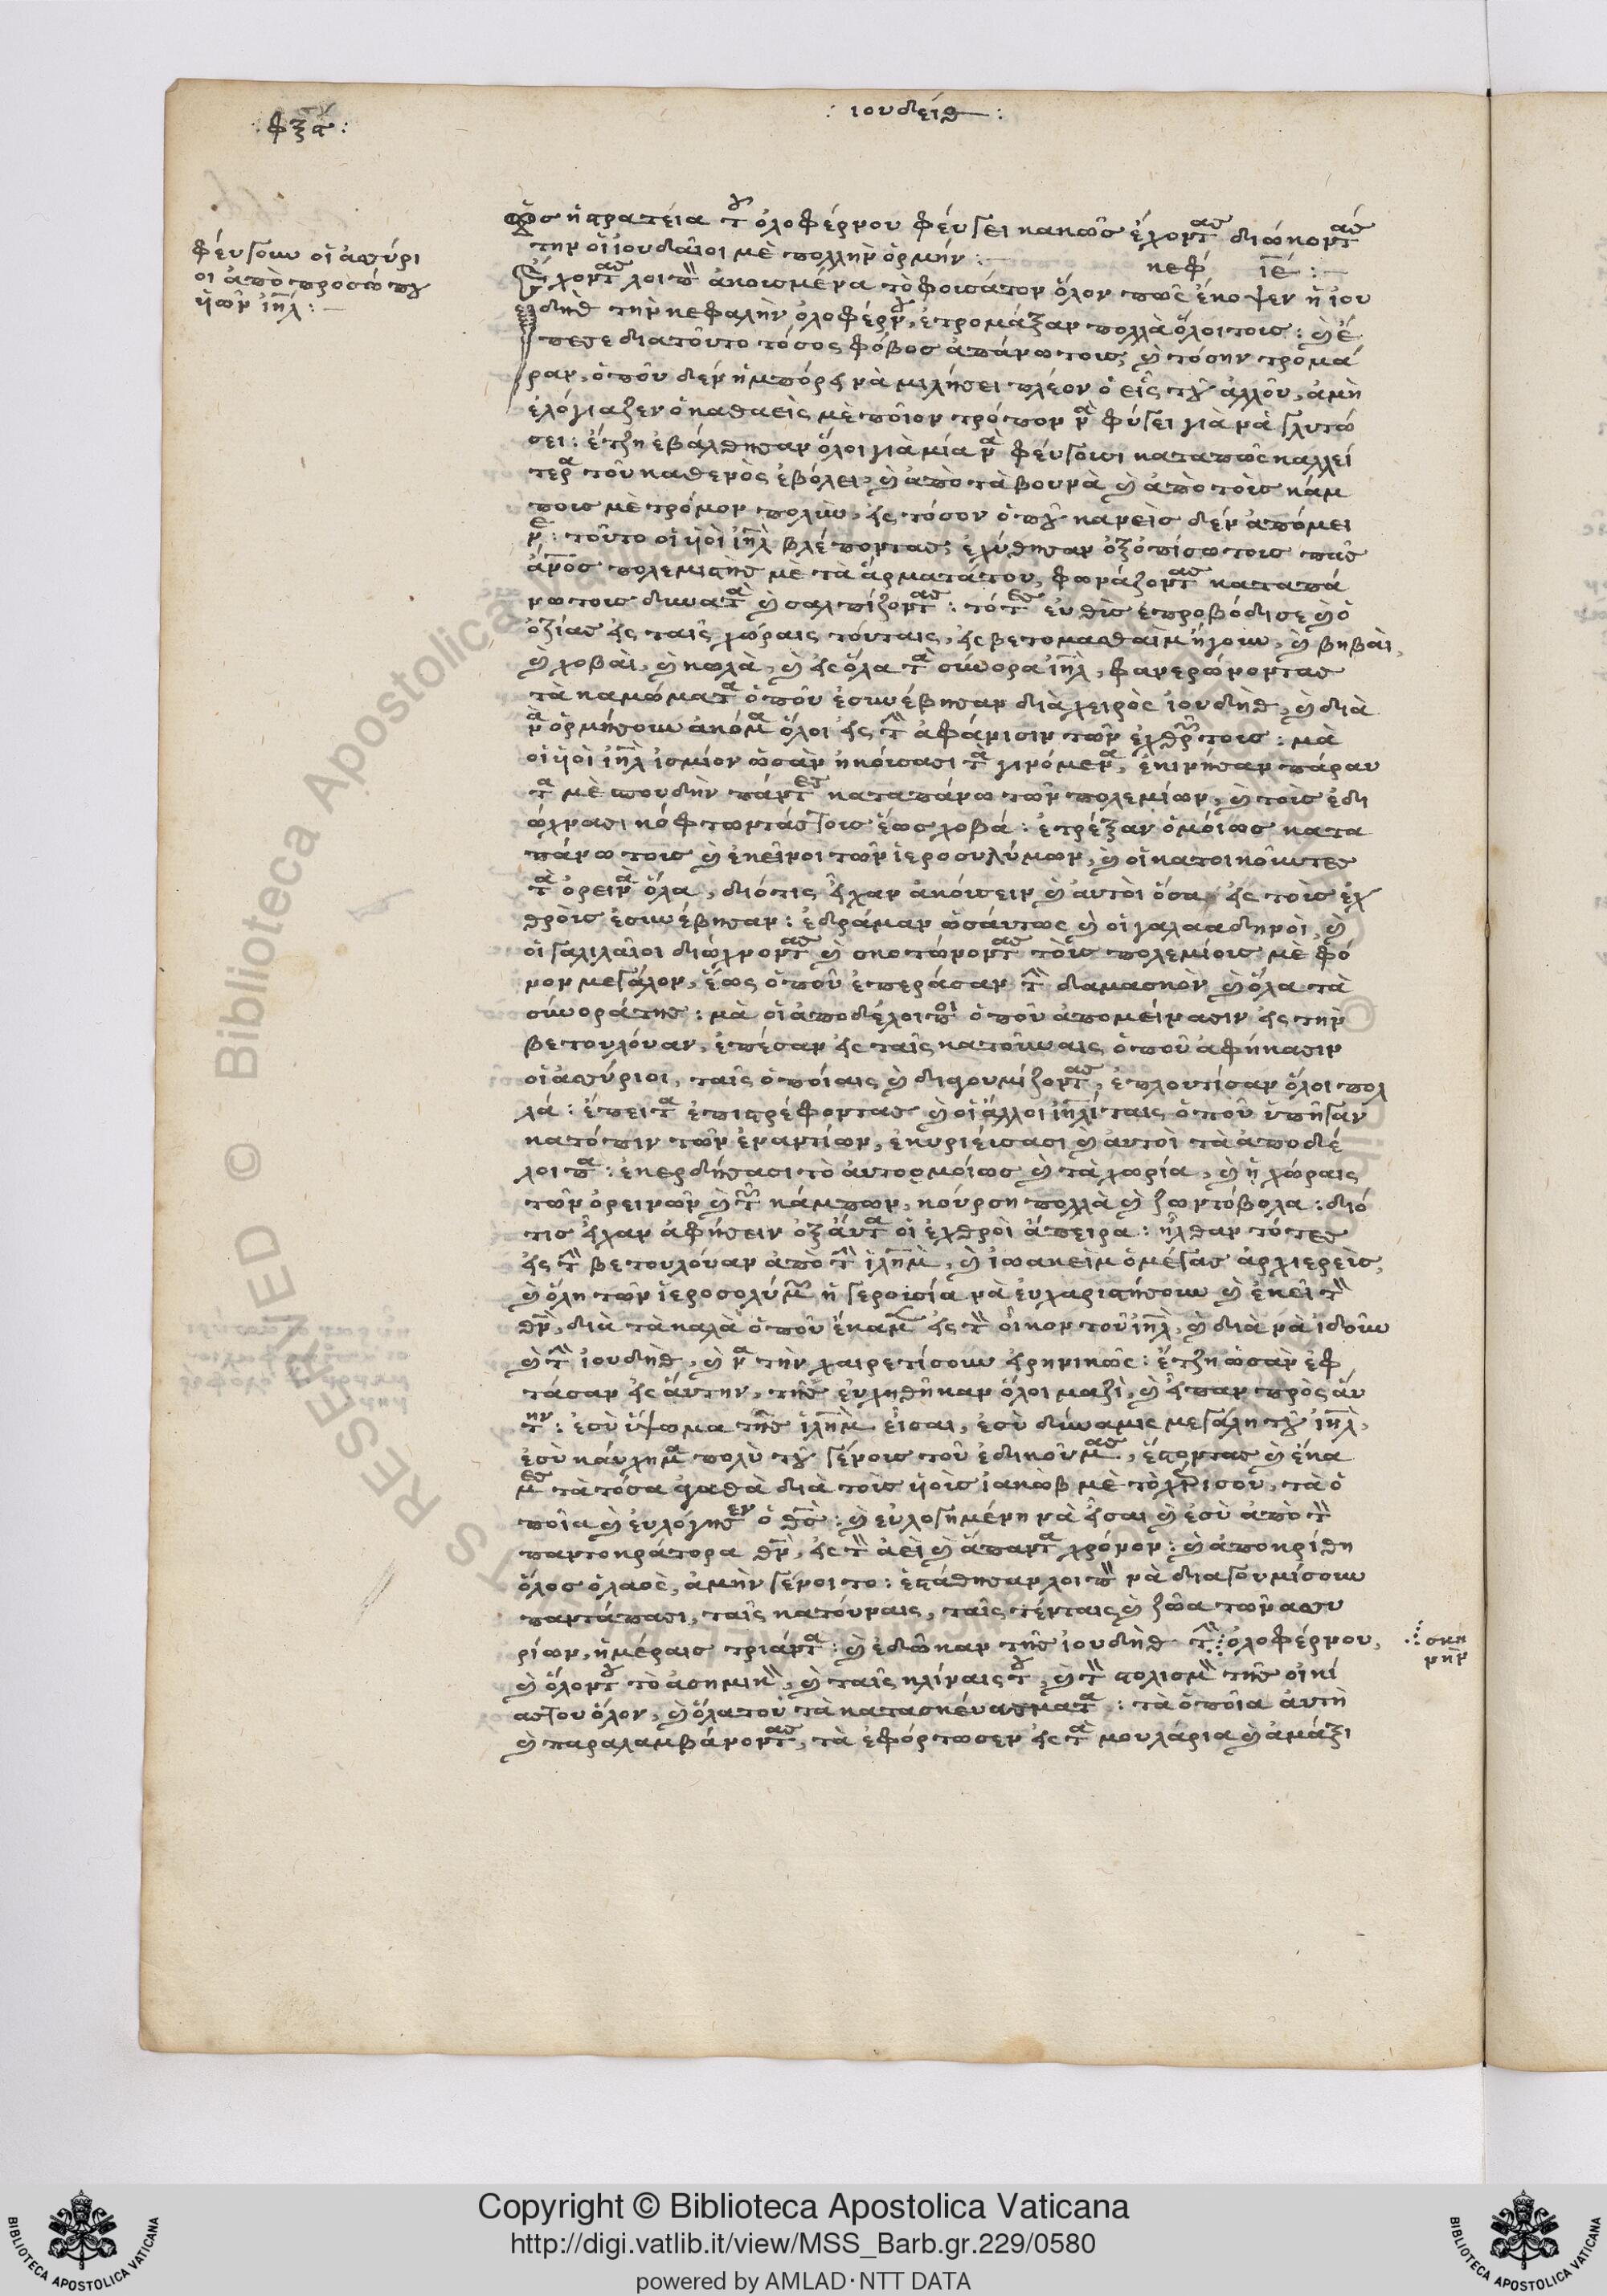 : ιουδείθ :
: φξα :
φεύγουν οἱ ἀσσύρι
οι ἀπὸ προσώπου
ὑιῶν ἰηλ :
πῶς ἡ στρατεία τοῦ ὀλοφέρνου φεύγει κακῶς ἔχοντας διώκοντάς
την οἱ ἰουδαῖοι μὲ πολλὴν ὁρμήν :
κεφ ιε :
Ἔχοντας λοιπὸν ἀκουσμένα τὸ φουσάτον ὅλον πῶς ἔκοψεν ἡ ἰου
δὴθ τὴν κεφαλὴν ὀλοφέρνου, ἐτρομάξαν πολλὰ ὅλοι τους : καὶ ἔ
πεσε διατοῦτο τόσος φόβος ἀπάνω τους, καὶ τόσην τρομά
ραν, ὁποῦ δὲν ἠμπόρει νὰ μιλήσει πλέον ὁ εἷς τοῦ ἀλλοῦ, ἀμὴ
ἐλόγιαζεν ὁ καθαεὶς μὲ ποῖον τρόπον νὰ φύγει γιὰ νὰ γλυτώ
σει : ἔτζη ἐβάλθησαν ὅλοι γιὰ μία νὰ φεύγουσι καταπῶς καλλεί
τερα τοῦ καθενὸς ἐβόλει, καὶ ἀπὸ τὰ βουνὰ καὶ ἀπὸ τοὺς κάμ
πους μὲ τρόμον πολὺν, εἰς τόσον ὁποῦ κανεὶς δὲν ἀπόμει
νε : τοῦτο οἱ ὑιοὶ ἰηλ βλέποντας, ἐχύθησαν ὀξοπίσω τους πᾶς
ἄνος πολεμιστὴς μὲ τὰ ἅρματάτου, φωνάζοντας καταπά
νω τους δυνατὰ καὶ σαλπίζοντας : τότες εὐθὺς ἐπροβόδισε καὶ ὁ
ὀζίας εἰς ταῖς χώραις τούταις, εἰς βετομασθαὶμ ἤγουν, καὶ βηβαὶ,
καὶ χοβαὶ, καὶ κωλὰ, καὶ εἰς ὅλα τὰ σύνορα ἰηλ, φανερώνοντας
τὰ καμώματα ὁποῦ ἐσυνέβησαν διὰ χειρὸς ἰουδὴθ, καὶ διὰ
νὰ ὁρμήσουν ἀκόμα ὅλοι εἰς τὴν ἀφάνισιν τῶν ἐχθρῶν τους : μὰ
οἱ ὑιοὶ ἰηλ ἰσμίον ὡσὰν ἠκούσασι τὰ γινόμενα, ἐκινήσαν πάραυ
τα μὲ σπουδὴν πάντες καταπάνω τῶν πολεμίων, καὶ τοὺς ἐδι
ώχνασι κόφτωντάς τους ἕως χοβά : ἐτρέξαν ὁμοίως κατα
πάνω τους καὶ ἐκεῖνοι τῶν ἱεροσολύμων, καὶ οἱ κατοικοῦντες
τὰ ὀρεινὰ ὅλα, διότις εἶχαν ἀκούσειν καὶ αὐτοὶ ὅσα εἰς τοὺς ἐχ
θροὺς ἐσυνέβησαν : ἐδράμαν ὡσάυτως καὶ οἱ γαλααδηνοὶ, καὶ
οἱ γαλιλαῖοι διώχνοντας καὶ σκοτώνοντας τοὺς πολεμίους μὲ φό
νον μεγάλον, ἕως ὁποῦ ἐπεράσαν τὴν δαμασκὸν καὶ ὅλα τὰ
σύνοράτης : μὰ οἱ ἀποδέλοιποι ὁποῦ ἀπομείνασιν εἰς τὴν
βετουλούαν, ἐπέσαν εἰς ταῖς κατοῦναις ὁποῦ ἀφήκασιν
οἱ ἀσσύριοι, ταῖς ὁποίαις καὶ διαγουμίζοντας, ἐπλουτίσαν ὅλοι πολ
λά : ἔπειτα ἐπιστρέφοντας καὶ οἱ ἄλλοι ἰηλίταις ὁποῦ ὑπῆγαν
κατόπιν τῶν ἐναντίων, ἐκυριεύσασι καὶ αὐτοὶ τὰ ἀποδέ
λοιπα : ἐκερδήσασι τὸ αὐτοομοίως καὶ τὰ χωρία, καὶ ἡ χώραις
τῶν ὀρεινῶν καὶ τῶν κάμπων, κούρση πολλὰ καὶ ζωντόβολα : διό
τις εἶχαν ἀφήσειν ὀξάυτα οἱ ἐχθροὶ ἄπειρα : ἦλθαν τότες
εἰς τὴν βετουλούαν ἀπὸ τὴν ἰλημ, καὶ ἰωακεὶμ ὁ μέγας ἀρχιερεὺς,
καὶ ὅλη τῶν ἱεροσολύμων ἡ γερουσία νὰ εὐχαριστήσουν καὶ ἐκεῖ τὸν
θν, διὰ τὰ καλὰ ὁποῦ ἔκαμεν εἰς τὸν οἶκον τοῦ ἰηλ, καὶ διὰ νὰ ἰδοῦν
καὶ τὴν ἰουδὴθ, καὶ νὰ τὴν χαιρετίσουν εἰρηνικῶς : ἔτζη ὡσὰν ἐφ
τάσαν εἰς ἄυτην, τῆς εὐχηθῆκαν ὅλοι μαζὶ, καὶ εἶπαν πρὸς αὐ
την : ἐσὺ ὕψωμα τῆς ἰλημ εἶσαι, ἐσὺ δύναμις μεγάλη τοῦ ἰηλ,
ἐσὺ κάυχημα πολὺ τοῦ γένους τοῦ ἐδικοῦ μας, ἔστοντας καὶ ἔκα
μες τὰ τόσα ἀγαθὰ διὰ τοὺς ὑιοὺς ἰακὼβ μὲ τὸ χέρι σου, τὰ ὁ
ποῖα καὶ εὐλόγησεν ὁ θς : καὶ εὐλογημένη νὰ εἶσαι καὶ ἐσὺ ἀπὸ τὸν
παντοκράτορα θν, εἰς τὸν ἀεὶ καὶ ἅπαντα χρόνον : καὶ ἀποκρίθη
ὅλος ὁ λαὸς, ἀμὴν γένοιτο : ἐστάθησαν λοιπὸν νὰ διαγουμίσουν
παντάπασι, ταῖς κατούναις, ταῖς τένταις καὶ ζῶα τῶν ἀσσυ
ρίων, ἡμέραις τριάντα : καὶ ἐδῶκαν τῆς ἰουδὴθ τὴν ὀλοφέρνου,
σκη
νὴν
καὶ ὅλοντου τὸ ἀσημικὸν, καὶ ταῖς κλίναιςτου, καὶ τὸν στολισμὸν τῆς οἰκί
αςτου ὅλον, καὶ ὅλατου τὰ κατασκευάσματα : τὰ ὁποῖα αὐτὴ
καὶ παραλαμβάνοντας, τὰ ἐφόρτωσεν εἰς τὰ μουλάρια καὶ ἀμάξι
© Biblioteca Apostolica
Copyright © Biblioteca Apostolica Vaticana
http://digi.vatlib.it/view/MSS_Barb.gr.229/0580
powered by AMLAD·NTT DATA
BIBLIOTECA APOSTOLICA VATICANA
BIBLIOTECA APOSTOLICA VATICANA